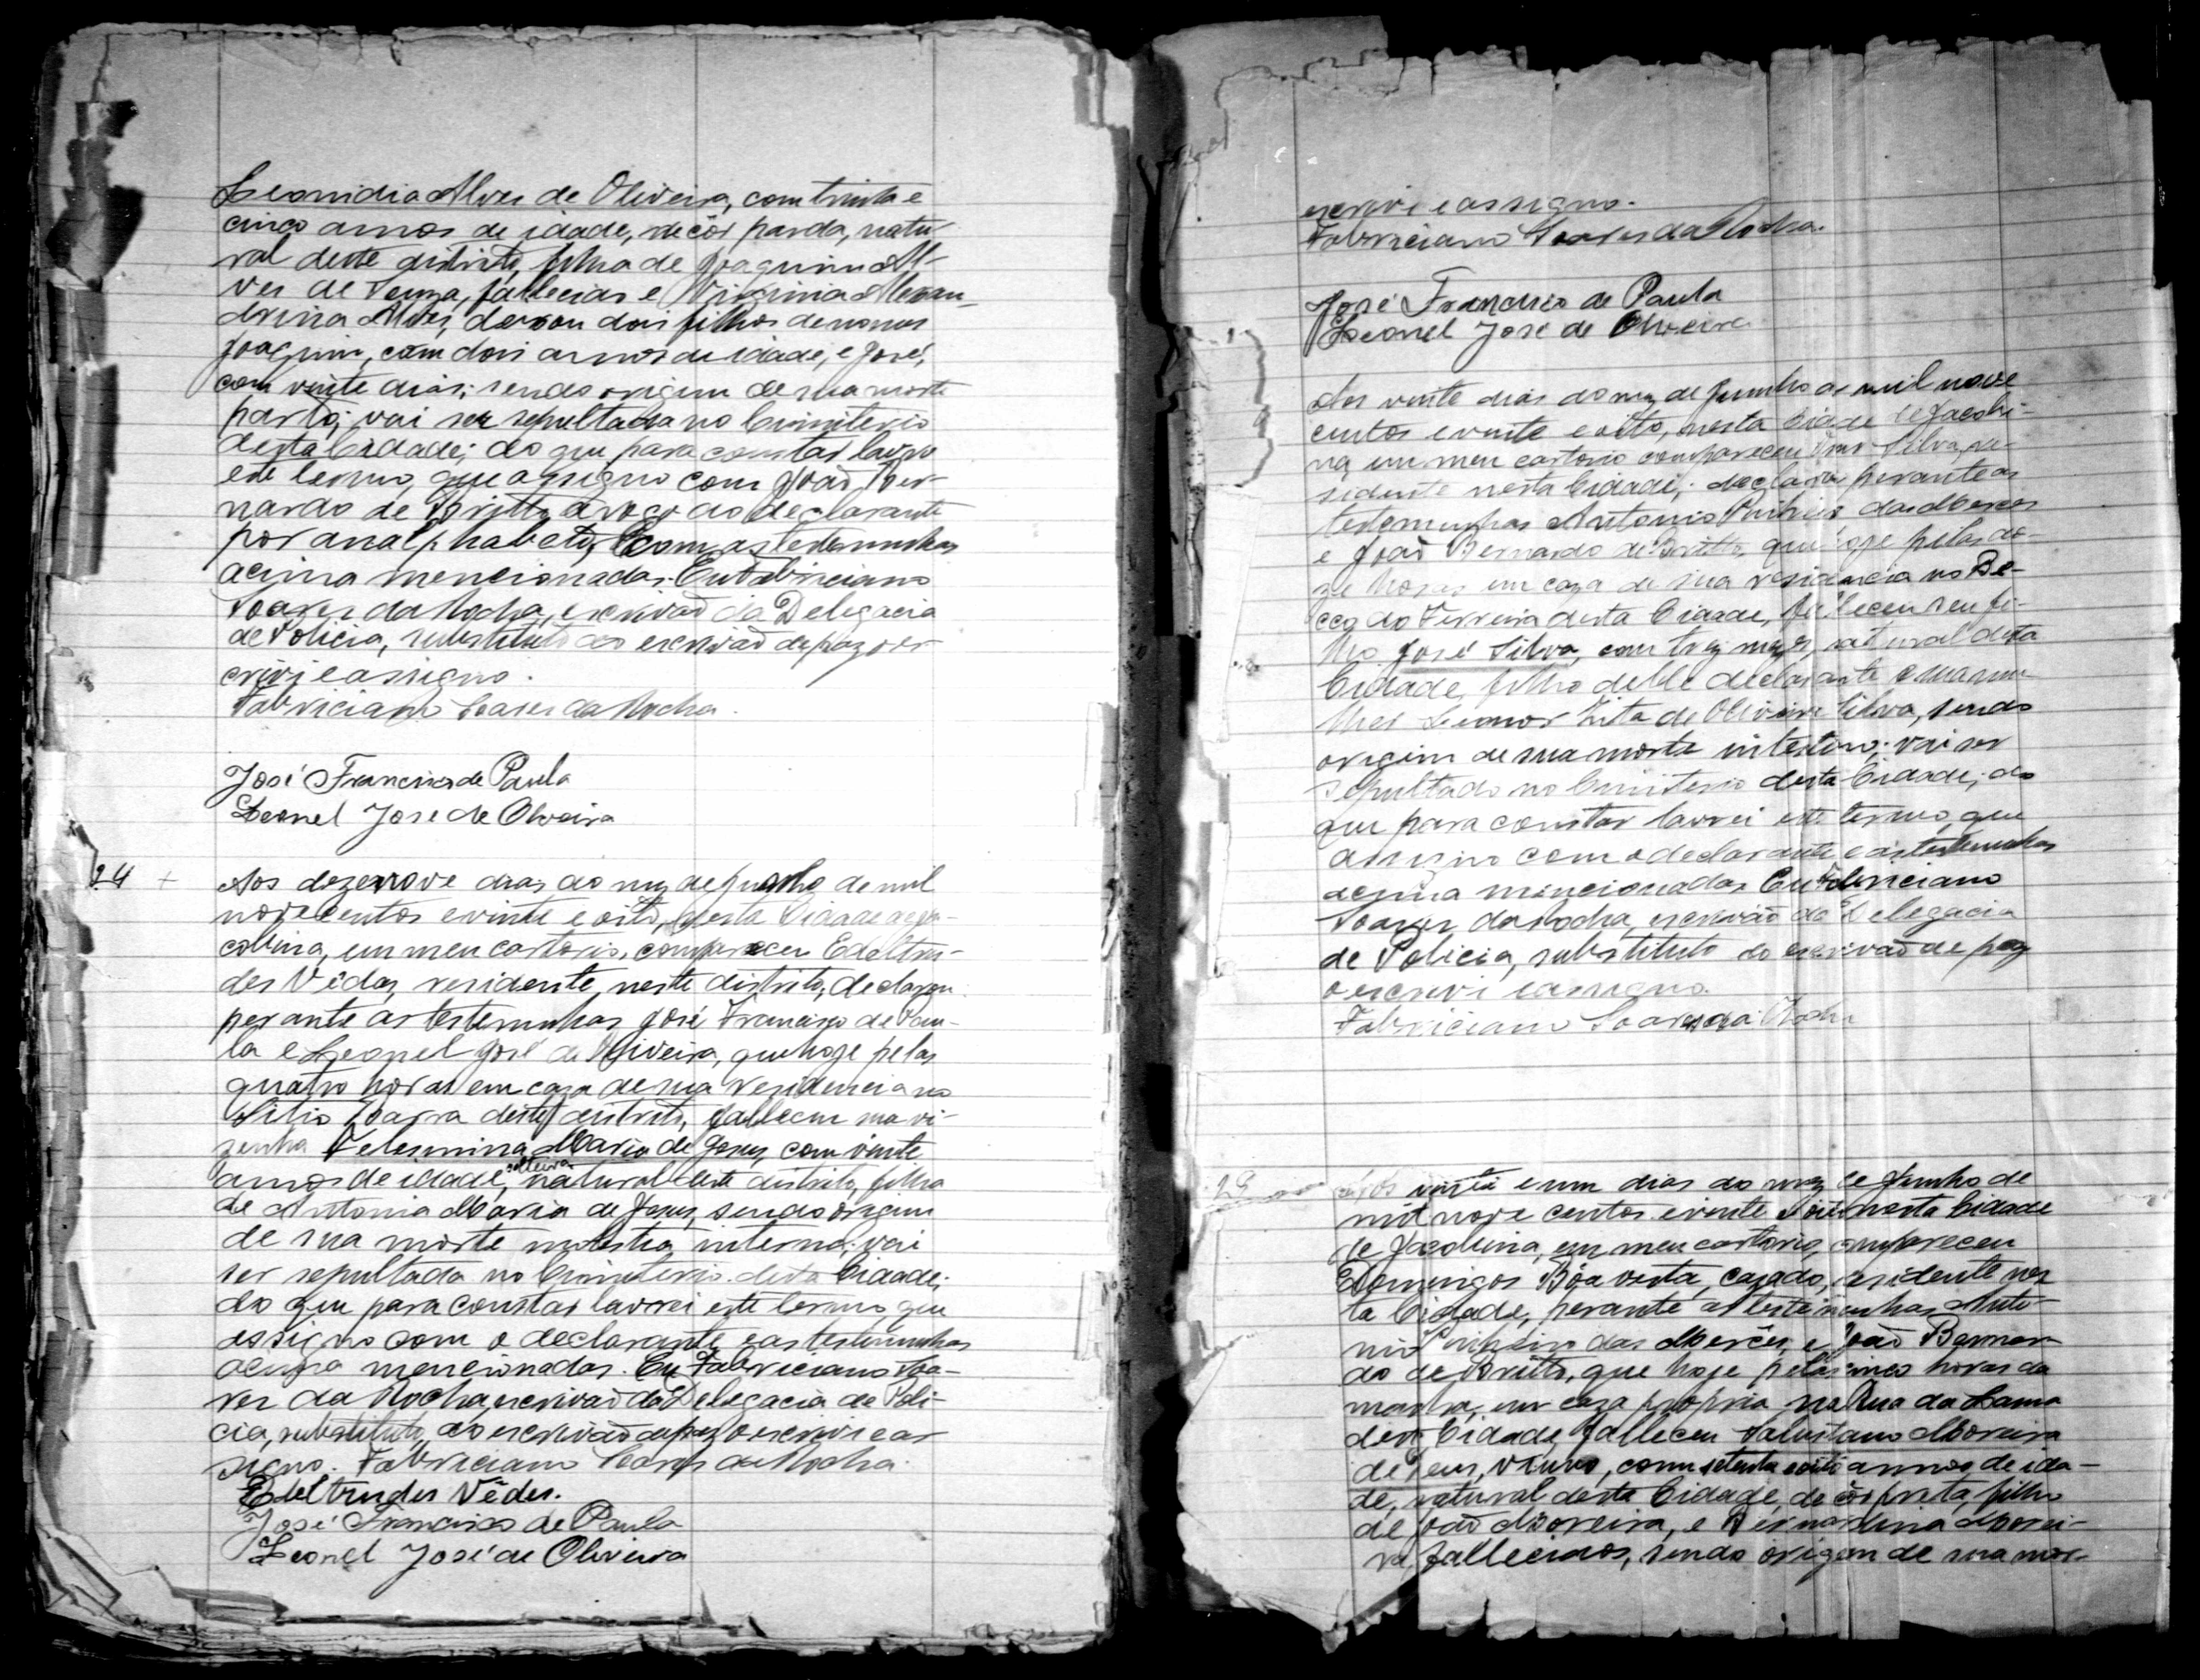 Leonidia Alves de Oliveira, com trinta e
cinco annos de idade, de côr parda, natu-
ral deste districto, filha de Joaquim Al-
ves de Souza, fallecido e Virginia Alexan-
drina Alves, deixou dois filhos de nomes
Joaquim, com dois annos de idade, e José,
com vinte dias; sendo origem de sua morte
parto; vai ser sepultada no Cimiterio
desta Cidade; do que para constar lavro
este termo, que assigno com João Ber-
nardo de Britto, a rogo do declarante
por analphabeto, com as testemunhas
acima mencionadas. Eu Fabriciano
Soares da Rocha, escrivão da Delegacia
de Policia, substituto do escrivão de paz o es-
crivi e assigno.
Fabriciano Soares da Rocha.
José Francisco de Paula
Leonel José de Oliveira
24 +
Aos dezenove dias do mez de Junho de mil
nove centos e vinte e oito, nesta Cidade de Ja-
cobina, em meu cartorio, compareceu Edeltru-
des Védes, residente neste districto, declarou
perante as testemunhas José Francisco de Pau-
la e Leonel José de Oliveira, que hoje pelas
quatro horas em caza de sua residencia no
Sitio Barra deste districto, falleceu sua vi-
sinha Felismina Maria de Jesus, com vinte
annos de idade, solteira, natural deste districto, filha
de Antonia Maria de Jesus, sendo origem
de sua morte molestia interna; vai
ser sepultada no Cimiterio desta Cidade;
do que para constar lavrei este termo, que
assigno com o declarante e as testemunhas
acima mencionadas. Eu Fabriciano Soa-
res da Rocha, escrivão da Delegacia de Poli-
cia, substituto do escrivão de paz o escrivi e as-
signo. Fabriciano Soares da Rocha.
Edeltrudes Védes.
José Francisco de Paula
Leonel José de Oliveira
escrivi e assigno.
Fabriciano Soares da Rocha.
José Francisco de Paula
Leonel José de Oliveira
Aos vinte dias do mez de Junho de mil nove
centos e vinte e oito, nesta Cidade de Jacobi-
na, em meu cartorio compareceu Silva, re-
sidente nesta Cidade; declarou perante as
testemunhas Antonio Pinheiro das Mercês
e João Bernardo de Britto, que hoje pelas do-
ze horas em caza de sua residencia no Be-
co do Ferreira desta Cidade, falleceu seu fi-
lho José Silva, com trez mezes, natural desta
Cidade, filho delle declarante e sua mu-
lher Leonor Zita de Oliveira Silva, sendo
origem de sua morte intestino; vai ser
sepultado no Cimiterio desta Cidade; do
que para constar lavrei este termo, que
assigno com o declarante e as testemunhas
acima mencionadas. Eu Fabriciano
Soares da Rocha, escrivão da Delegacia
de Policia, substituto do escrivão de paz
o escrivi e assigno.
Fabriciano Soares da Rocha
Aos vinte e um dias do mez de Junho de
mil nove centos e vinte e oito nesta Cidade
de Jacobina, em meu cartorio, compareceu
Domingos Bôa vista, casado, residente nes-
ta Cidade, perante as testemunhas Anto-
nio Pinheiro das Mercês, e João Bernar-
do de Britto, que hoje pelas cinco horas da
manhã, em caza propria na Rua da Lama
desta Cidade, falleceu Salustiano Moreira
de Deus, viuvo, com setenta e oito annos de ida-
de, natural desta Cidade, de côr preta, filho
de João Moreira, e Bernardina Morei-
ra, fallecidos, sendo origem de sua mor-